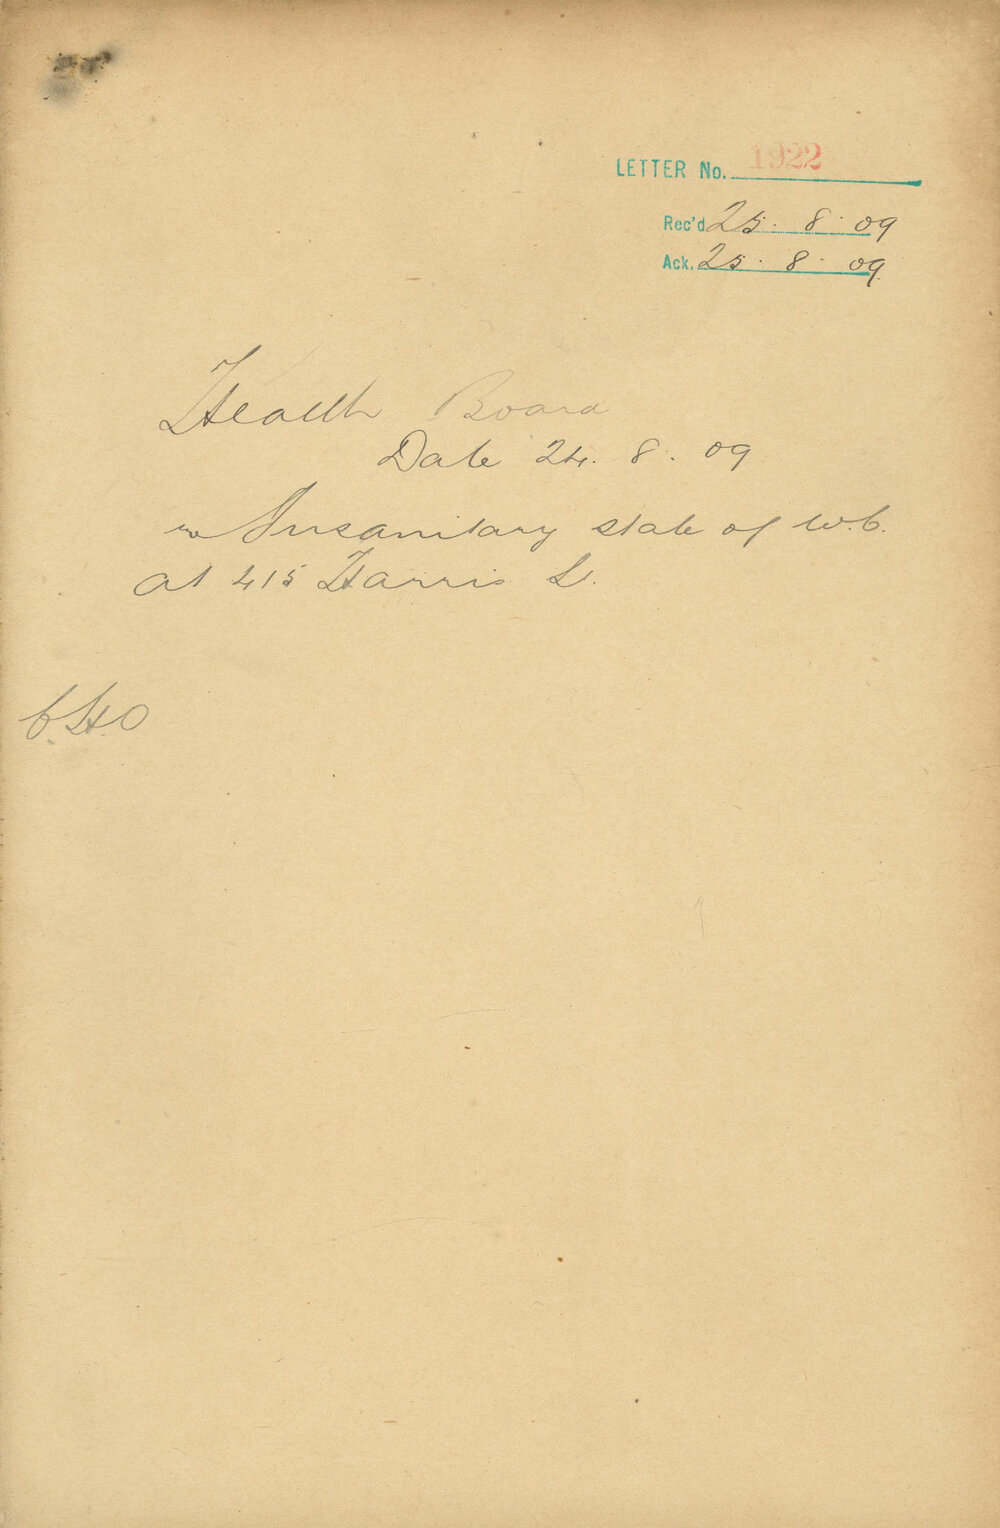 LETTER No. 1922
Rec'd 25. 8. 09
Ack. 25. 8. 09
Health Board
Date 24. 8. 09
re Insanitary state of W.C.
at 415 Harris St.
C.H.O